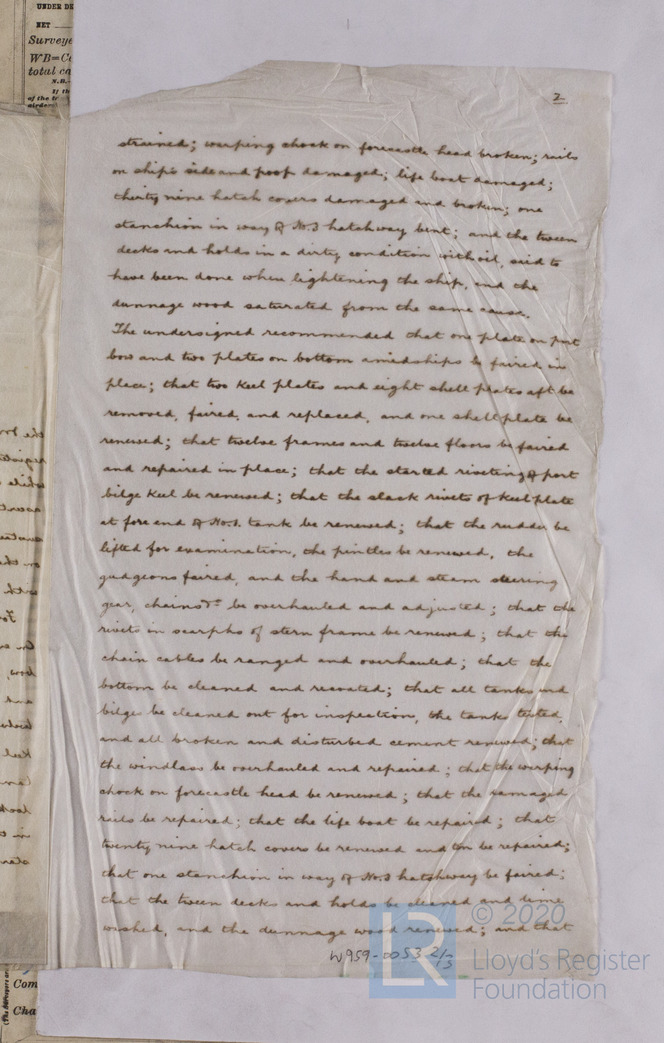 UNDER DE
NET
Surveye
WB=Ce
total ca
N.B.
of the
2.
strained; warping chock on forecastle head broken; rails
on ship's side and poop damaged; life boat damaged;
thirty nine hatch covers damaged and broken; one
stanchion in way of No.3 hatchway bent; and the tween
decks and holds in a dirty condition with oil, said to
have been done when lightening the ship, and the
dunnage wood saturated from the same cause.
The undersigned recommended that one plate on port
bow and two plates on bottom amidships be faired in
place; that two keel plates and eight shell plates aft be
removed, faired, and replaced, and one shell plate be
renewed; that twelve frames and twelve floors be faired
and repaired in place; that the started riveting of port
bilge keel be renewed; that the slack rivets of keel plate
at fore end of No.1. tank be renewed; that the rudder be
lifted for examination, the pintles be renewed, the
gudgeons faired, and the hand and steam steering
gear, chains &c be overhauled and adjusted; that the
rivets in scarphs of stern frame be renewed; that the
chain cables be ranged and overhauled; that the
bottom be cleaned and recoated; that all tanks and
bilges be cleaned out for inspection, the tanks tested,
and all broken and disturbed cement renewed; that
the windlass be overhauled and repaired; that the warping
chock on forecastle head be renewed; that the damaged
rails be repaired; that the life boat be repaired; that
twenty nine hatch covers be renewed and ten be repaired;
that one stanchion in way of No.3 hatchway be faired;
that the tween decks and holds be cleaned and lime
washed, and the dunnage wood renewed; and that
W959-0053 2/3
LR © 2020
Lloyd's Register
Foundation
Com
Cha